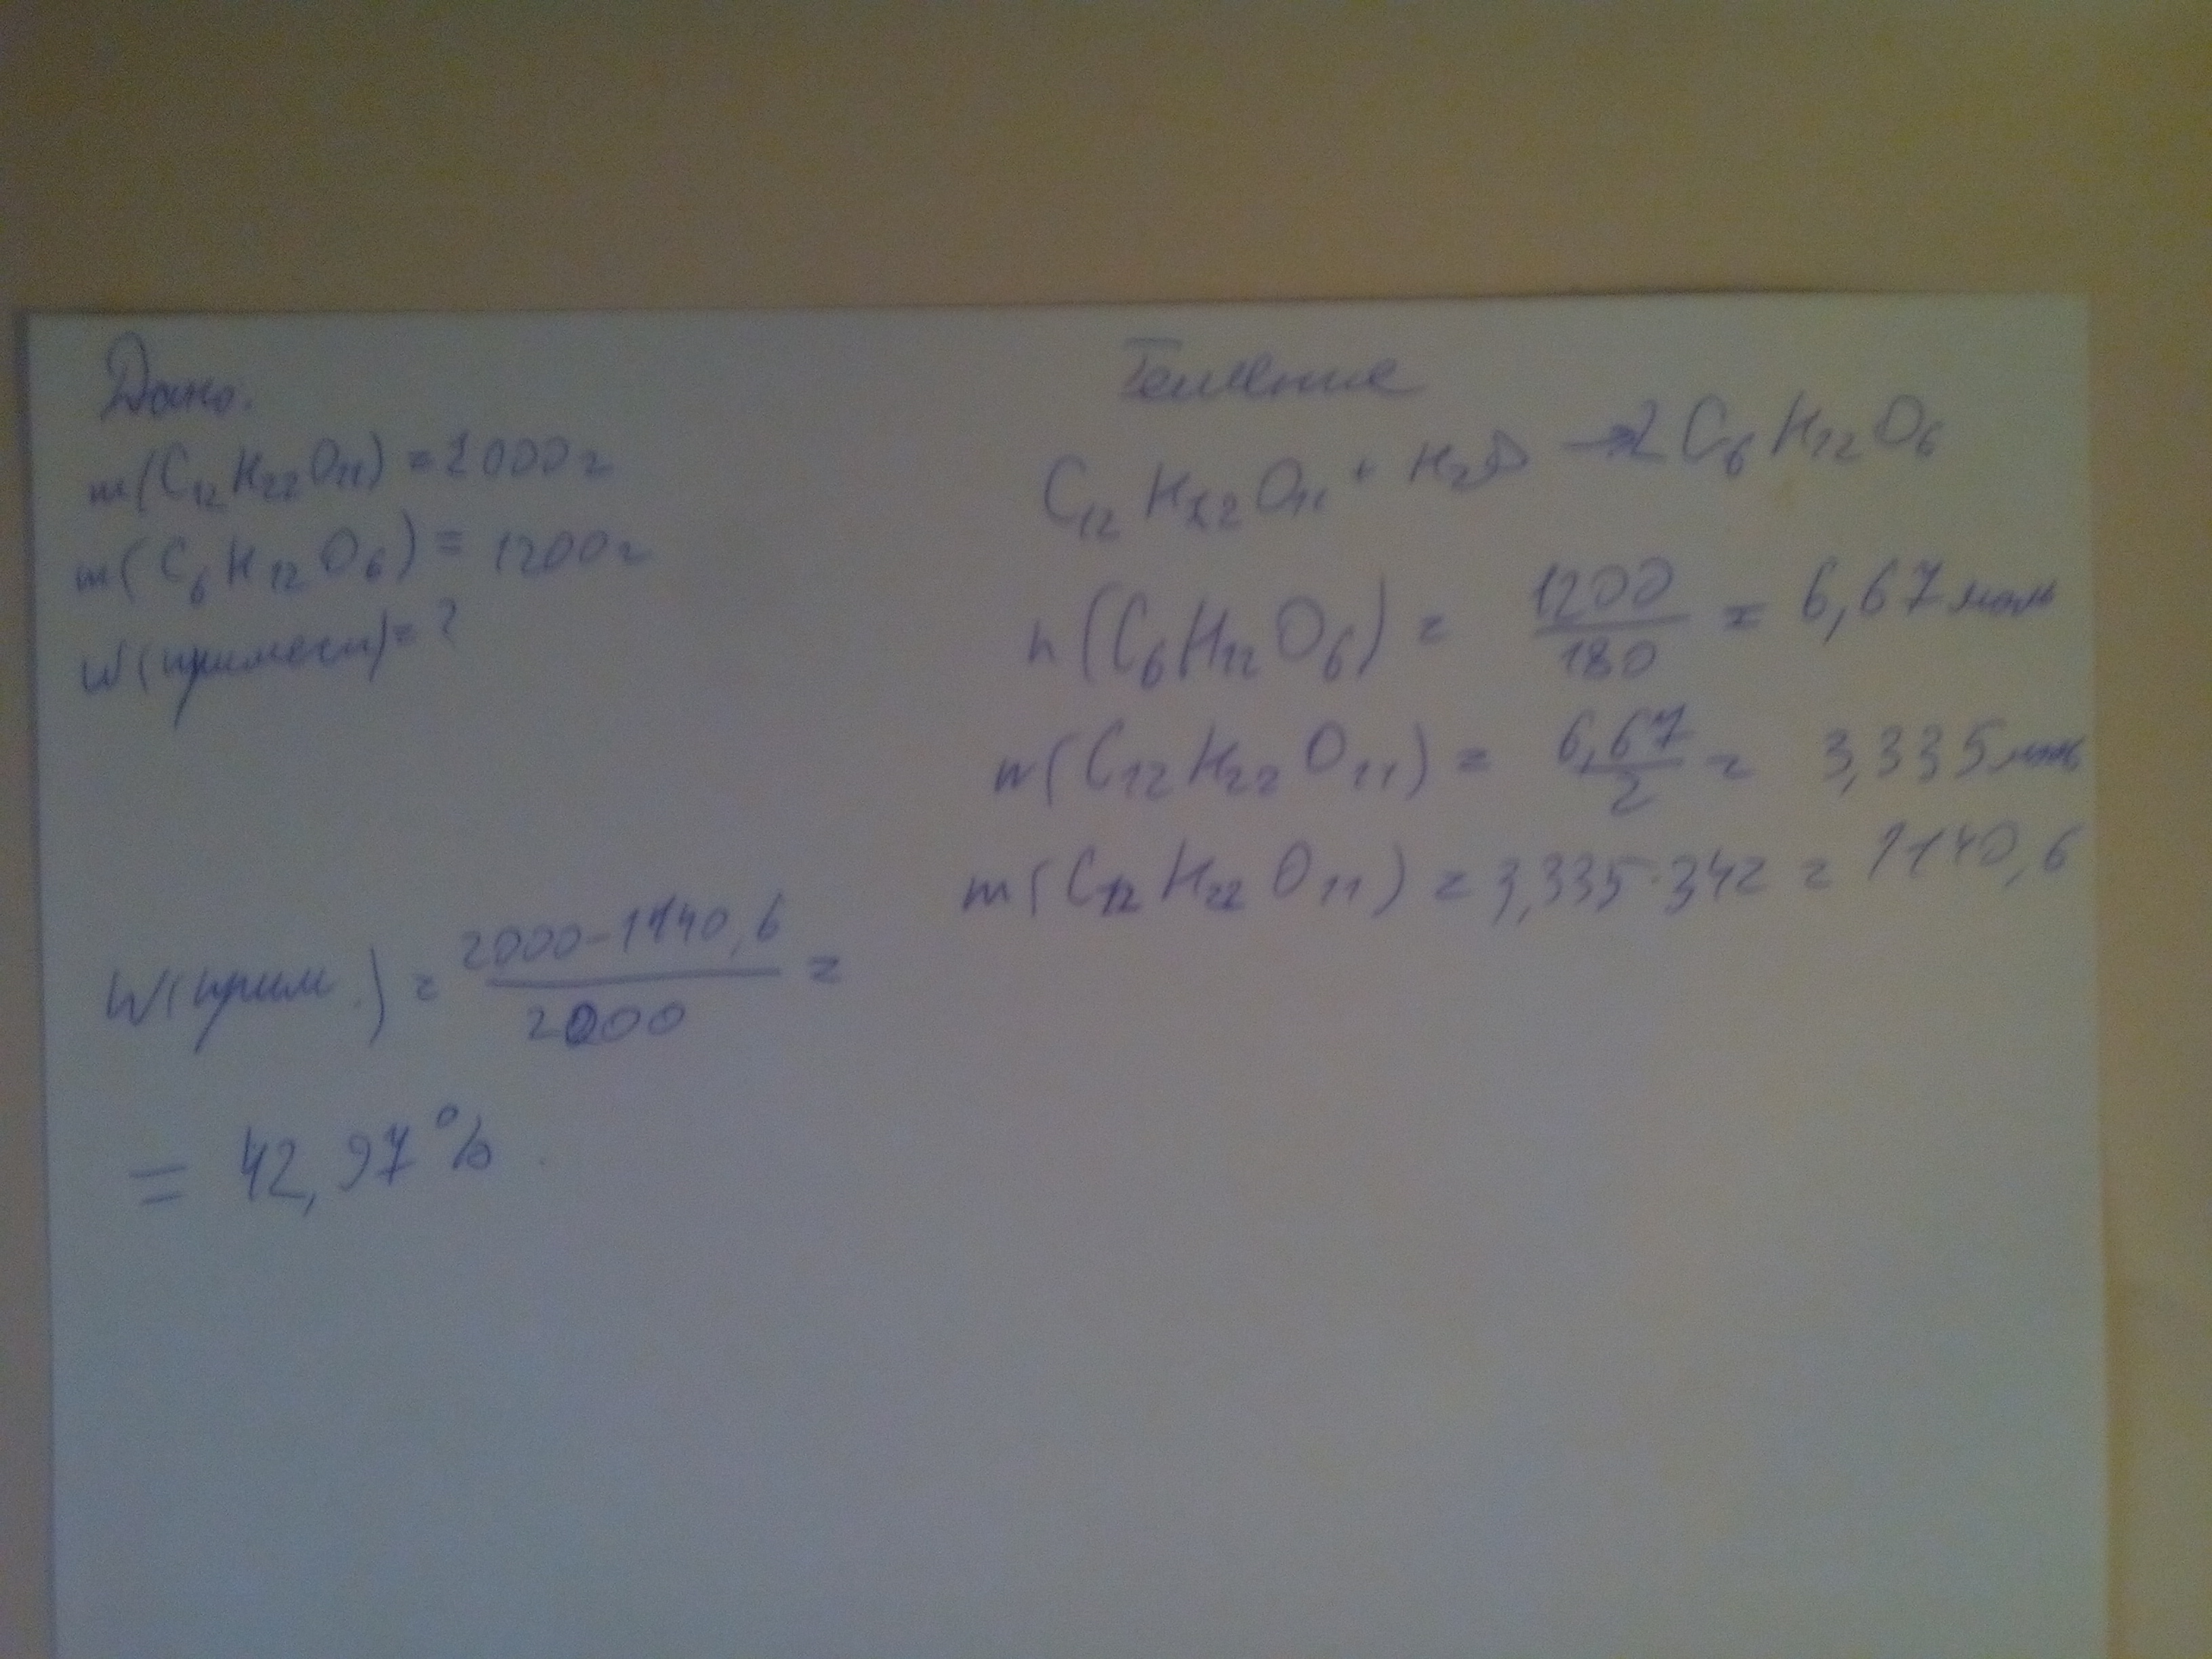 Дано:
m(C₁₂H₂₂O₁₁) = 2000 г
m(C₆H₁₂O₆) = 1200 г
W(примеси) = ?
W(прим.) = (2000 - 1140,6)/2000 =
= 42,97 %
Решение
C₁₂H₂₂O₁₁ + H₂O → 2 C₆H₁₂O₆
n(C₆H₁₂O₆) = 1200/180 = 6,67 моль
n(C₁₂H₂₂O₁₁) = 6,67/2 = 3,335 моль
m(C₁₂H₂₂O₁₁) = 3,335·342 = 1140,6